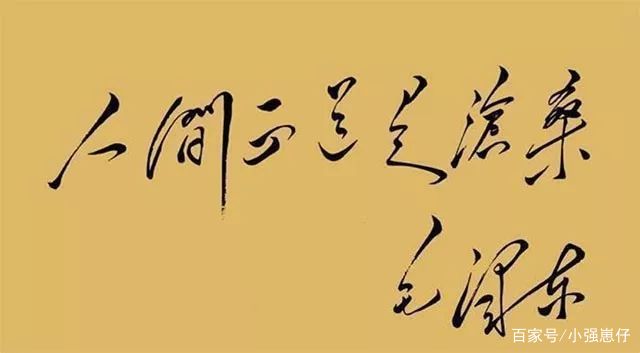 人间正道是滄桑
毛泽东
百家号/小强崽仔